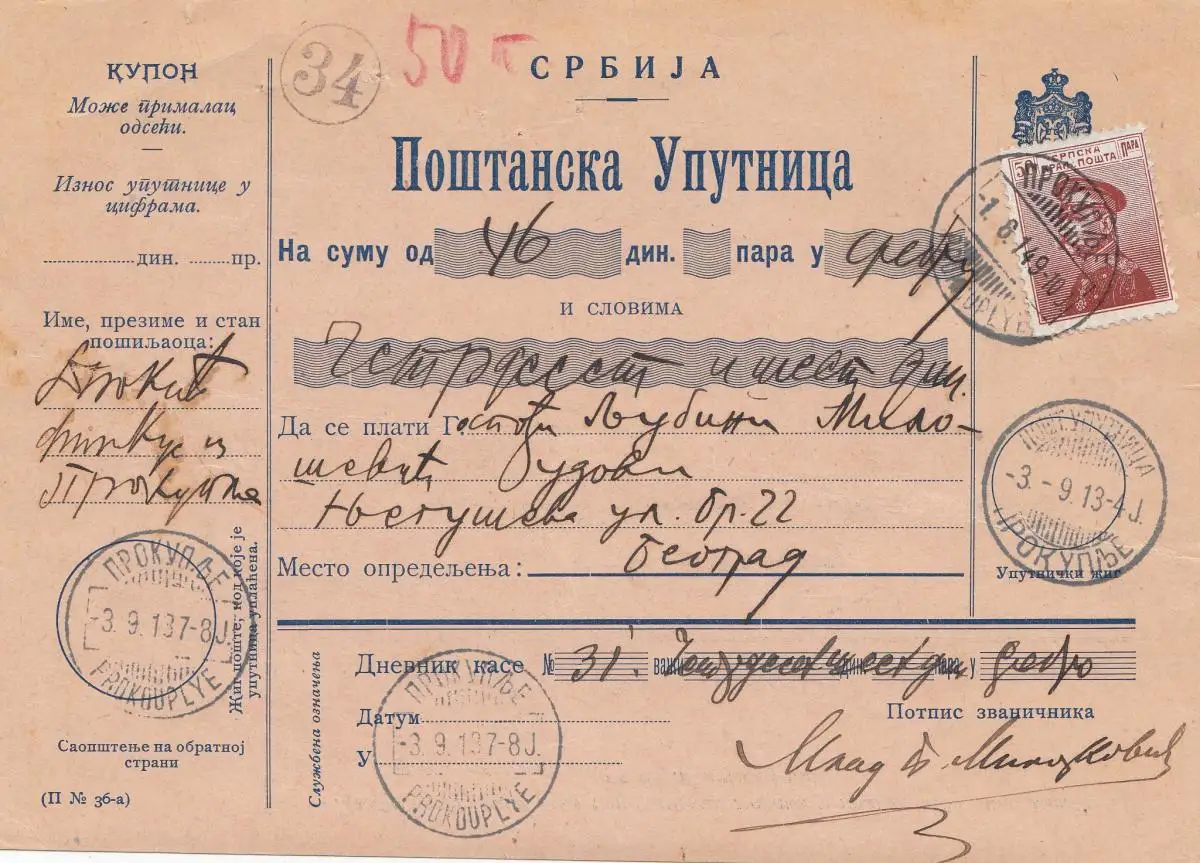 КУПОН
Може прималац
одсећи.
Износ упутнице у
цифрама.
дин. пр.
Име, презиме и стан
пошиљаоца:
из
ПРОКУПЉЕ
-3. 9. 137-8J.
PROKOUPLYE
Жиг поште, код које је
упутница уплаћена.
Саопштење на обратној
страни
(П № 36-а)
34
50
СРБИЈА
Поштанска Упутница
На суму од 46 дин. пара у сребру
и словима
Четрдесет и шест дин.
Да се плати Госпођи Љубини Мило-
шевић удови
Његушева ул. бр. 22
Место опредељења: Београд
50 СРПСКА ПАРА
КРАЉ. ПОШТА
ПРОКУПЉЕ
ПОШТ. УПУТНИЦА
-3. - 9. 13-4J.
ПРОКУПЉЕ
Упутнички жиг
Службена означења
Дневник касе № 31. важи Четрдесет и шест дин дин. пара у сребро
Датум
У
ПРОКУПЉЕ
-3. 9. 137-8J.
PROKOUPLYE
Потпис званичника